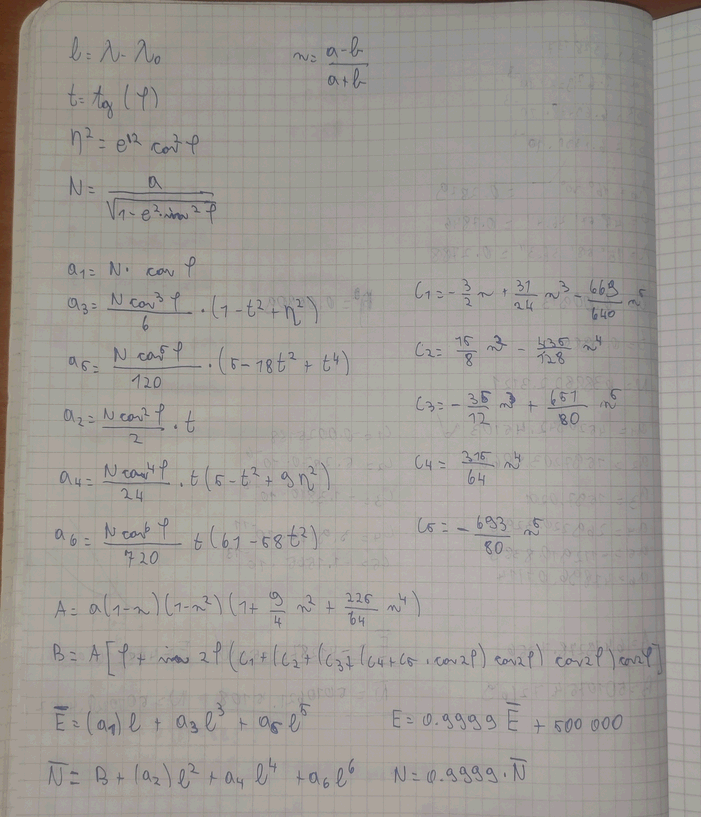 l = λ - λ₀    n = (a-b)/(a+b)
t = tg(φ)
η² = e'² cos²φ
N = a/√(1-e²·sin²φ)
a₁ = N· cos φ
a₃ = (N cos³φ)/6 · (1-t²+η²)
a₅ = (N cos⁵φ)/120 · (5-18t²+t⁴)
a₂ = (N cos²φ)/2 · t
a₄ = (N cos⁴φ)/24 · t(5-t²+9η²)
a₆ = (N cos⁶φ)/720 t(61-58t²)
C₁ = -3/2 n + 31/24 n³ - 669/640 n⁵
C₂ = 15/8 n² - 435/128 n⁴
C₃ = -35/12 n³ + 651/80 n⁵
C₄ = 315/64 n⁴
C₅ = -693/80 n⁵
A = a(1-n)(1-n²)(1+ 9/4 n² + 225/64 n⁴)
B = A[φ + sin 2φ(C₁+(C₂+(C₃+(C₄+C₅·cos2φ)cos2φ)cos2φ)cos2φ]
E̅ = (a₁)l + a₃l³ + a₅l⁵    E = 0.9999 E̅ + 500 000
N̅ = B + (a₂)l² + a₄l⁴ + a₆l⁶    N = 0.9999·N̅